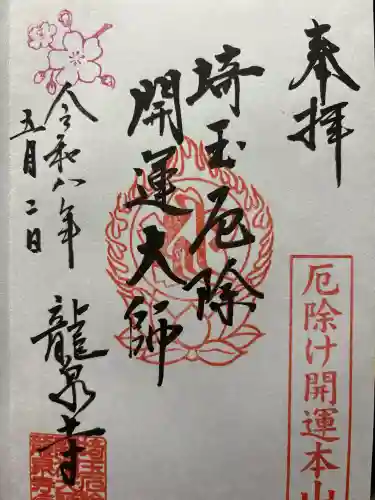 奉拝
厄除け開運本山
埼玉厄除
開運大師
令和八年
五月二日
龍泉寺